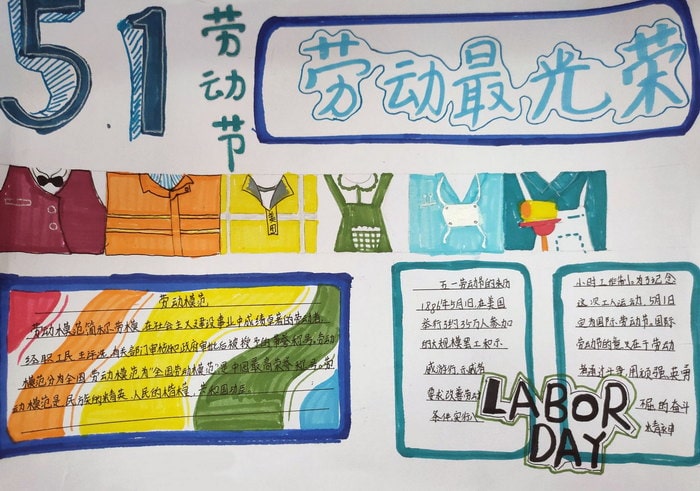 5.1
劳动节
劳动最光荣
美团
劳动模范
劳动模范简称劳模,在社会主义建设事业中成绩卓著的劳动者,
经职工民主评选,有关部门审核和政府审批后被授予的荣誉称号。劳动
模范分为全国劳动模范
是中国最高荣誉称号。劳
动模范是民族的精英,人民的楷模,共和国功臣。
五一劳动节的来历
1886年5月1日,在美国
参行约35万人参加
的大规模罢工和示
威游行,示威者
要求改善劳动
条件,实行八
小时工作制。为了纪念
这次工人运动,5月1日
定为国际劳动节。国际
劳动节的意义在于劳动
者通过斗争,用顽强、英勇
屈的奋斗
LABOR
DAY